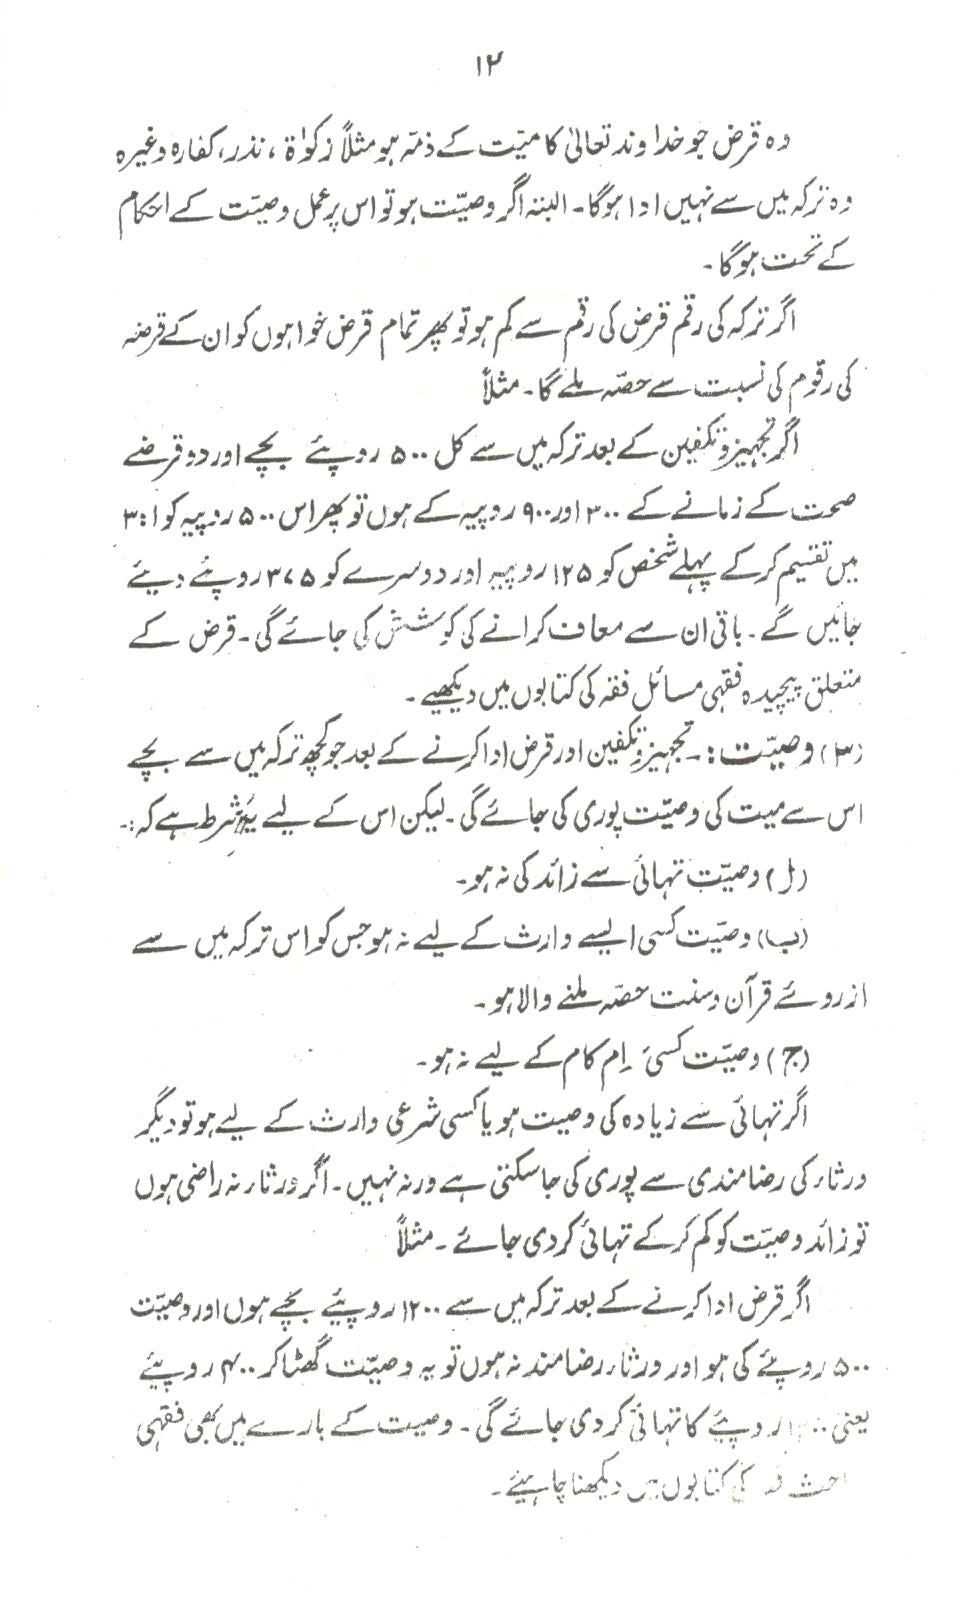 ۱۲
وہ قرض جو خداوند تعالیٰ کا میّت کے ذمّہ ہو مثلاً زکوٰۃ، نذر، کفارہ وغیرہ
وہ ترکہ میں سے نہیں ادا ہوگا۔ البتہ اگر وصیّت ہو تو اس پر عمل وصیّت کے احکام
کے تحت ہوگا۔
اگر ترکہ کی رقم قرض کی رقم سے کم ہو تو پھر تمام قرض خواہوں کو ان کے قرضہ
کی رقوم کی نسبت سے حصّہ ملے گا۔ مثلاً
اگر تجہیز و تکفین کے بعد ترکہ میں سے کل ۵۰۰ روپئے بچے اور دو قرضے
صحت کے زمانے کے ۳۰۰ اور ۹۰۰ روپیہ کے ہوں تو پھر اس ۵۰۰ روپیہ کو ۱:۳
میں تقسیم کرکے پہلے شخص کو ۱۲۵ روپیہ اور دوسرے کو ۳۷۵ روپئے دیئے
جائیں گے۔ باقی ان سے معاف کرانے کی کوشش کی جائے گی۔ قرض کے
متعلق پیچیدہ فقہی مسائل فقہ کی کتابوں میں دیکھیے۔
(۳) وصیّت :۔ تجہیز و تکفین اور قرض ادا کرنے کے بعد جو کچھ ترکہ میں سے بچے
اس سے میت کی وصیّت پوری کی جائے گی۔ لیکن اس کے لیے یہ شرط ہے کہ :۔
(ا) وصیّت تہائی سے زائد کی نہ ہو۔
(ب) وصیّت کسی ایسے وارث کے لیے نہ ہو جس کو اس ترکہ میں سے
از روئے قرآن و سنت حصّہ ملنے والا ہو۔
(ج) وصیّت کسی کام کے لیے نہ ہو۔
اگر تہائی سے زیادہ کی وصیت ہو یا کسی شرعی وارث کے لیے ہو تو دیگر
ورثاء کی رضامندی سے پوری کی جاسکتی ہے ورنہ نہیں۔ اگر ورثاء نہ راضی ہوں
تو زائد وصیّت کو کم کرکے تہائی کردی جائے۔ مثلاً
اگر قرض ادا کرنے کے بعد ترکہ میں سے ۱۲۰۰ روپیئے بچے ہوں اور وصیّت
۵۰۰ روپئے کی ہو اور ورثاء رضامند نہ ہوں تو یہ وصیّت گھٹا کر ۴۰۰ روپیئے
یعنی روپئے کا تہائی کردی جائے گی۔ وصیت کے بارے میں بھی فقہی
کی کتابوں میں دیکھنا چاہیئے۔